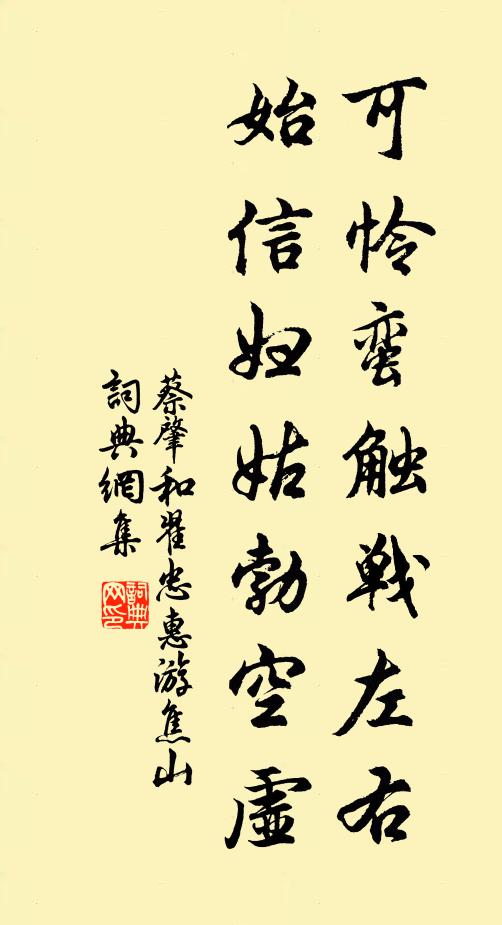 可怜蛮触战左右
始信妇姑勃空虚
蔡肇和翟忠惠游焦山
詞典網集
詞典网印